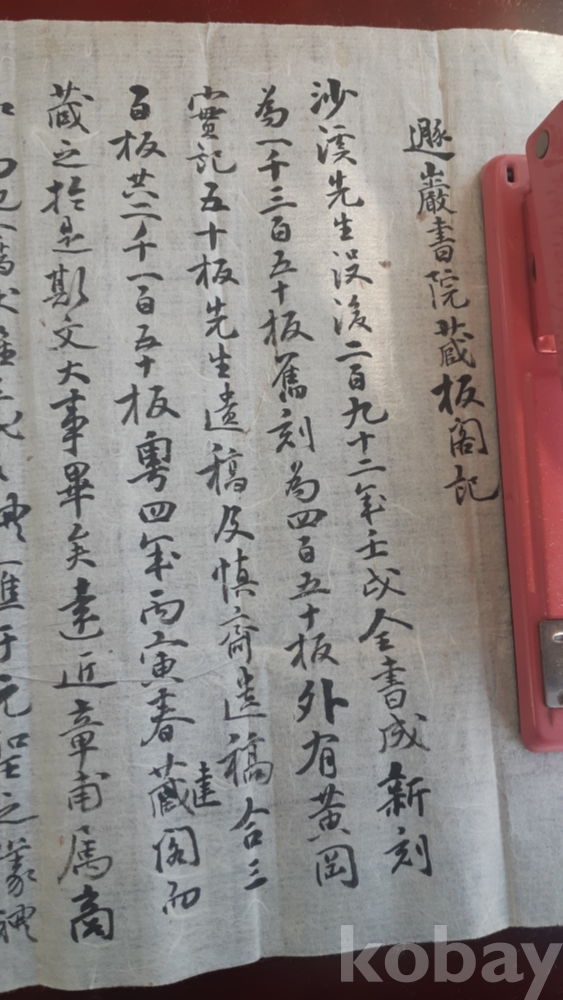 遯巖書院藏板閣記
沙溪先生沒後二百九十二年壬戌全書成新刻
為一千三百五十板舊刻為四百五十板外有黃岡
實記五十板先生遺稿及慎齋遺稿合三
百板共二千一百五十板粤四年丙寅春建藏閣而
藏之於是斯文大事畢矣遠近章甫属商
元聖之
kobay